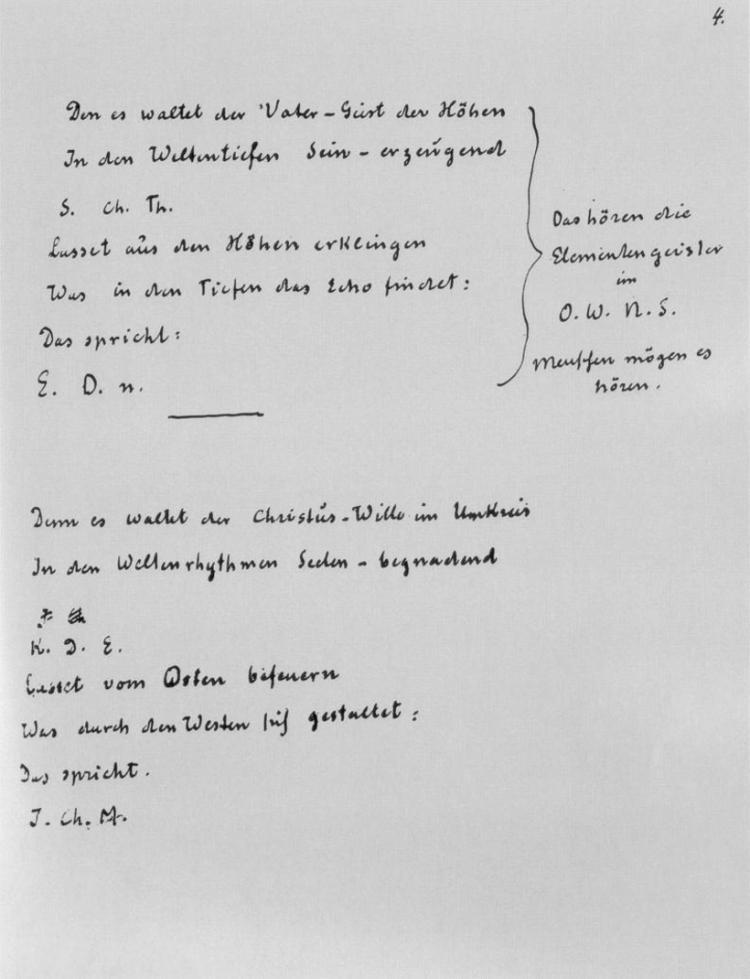 4.
Den es waltet der Vater-Geist der Höhen
In den Weltentiefen Sein-erzeugend
S. Ch. Th.
Lasset aus den Höhen erklingen
Was in den Tiefen das Echo findet:
Das spricht:
E. D. n.
Das hören die
Elementengeister
im
O. W. N. S.
Menschen mögen es
hören.
Denn es waltet der Christus-Wille im Umkreis
In den Weltenrhythmen Seelen-begnadend
K. D. E.
Lasset vom Osten befeuern
Was durch den Westen sich gestaltet:
Das spricht.
I. Ch. M.